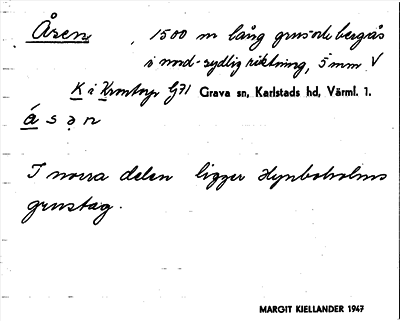 Åsen, 1500 m lång grus o bergås
i nord-sydlig riktning, 5 mm V
K i Krontorp G71 Grava sn, Karlstads hd, Värml. l.
á s ə n
I norra delen ligger Hynboholms
grustag.
MARGIT KIELLANDER 1947